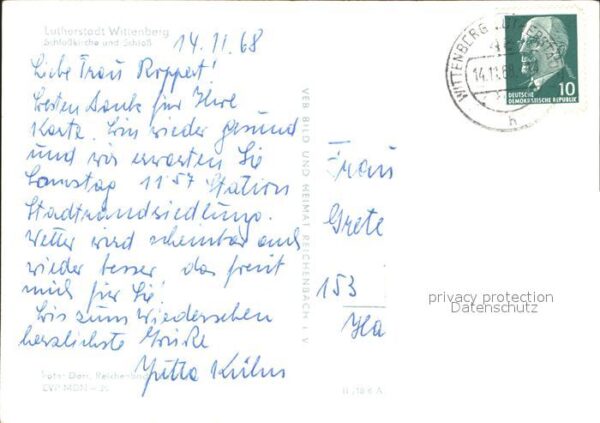 Lutherstadt Wittenberg
Schloßkirche und Schloß
14.11.68
Liebe Frau Roppert!
Besten Dank für Ihre
Karte. Bin wieder gesund
und wir erwarten Sie
Samstag 11⁵⁷ Station
Stadtrandsiedlung.
Wetter wird scheinbar auch
wieder besser, das freut
mich für Sie!
Bis zum Wiedersehen
herzlichste Grüße
Jutta Kühn
VEB BILD UND HEIMAT REICHENBACH I. V.
WITTENBERG LUTHERSTADT
14.11.68
h
10
DEUTSCHE
DEMOKRATISCHE REPUBLIK
Frau
Grete
153
Ha
privacy protection
Datenschutz